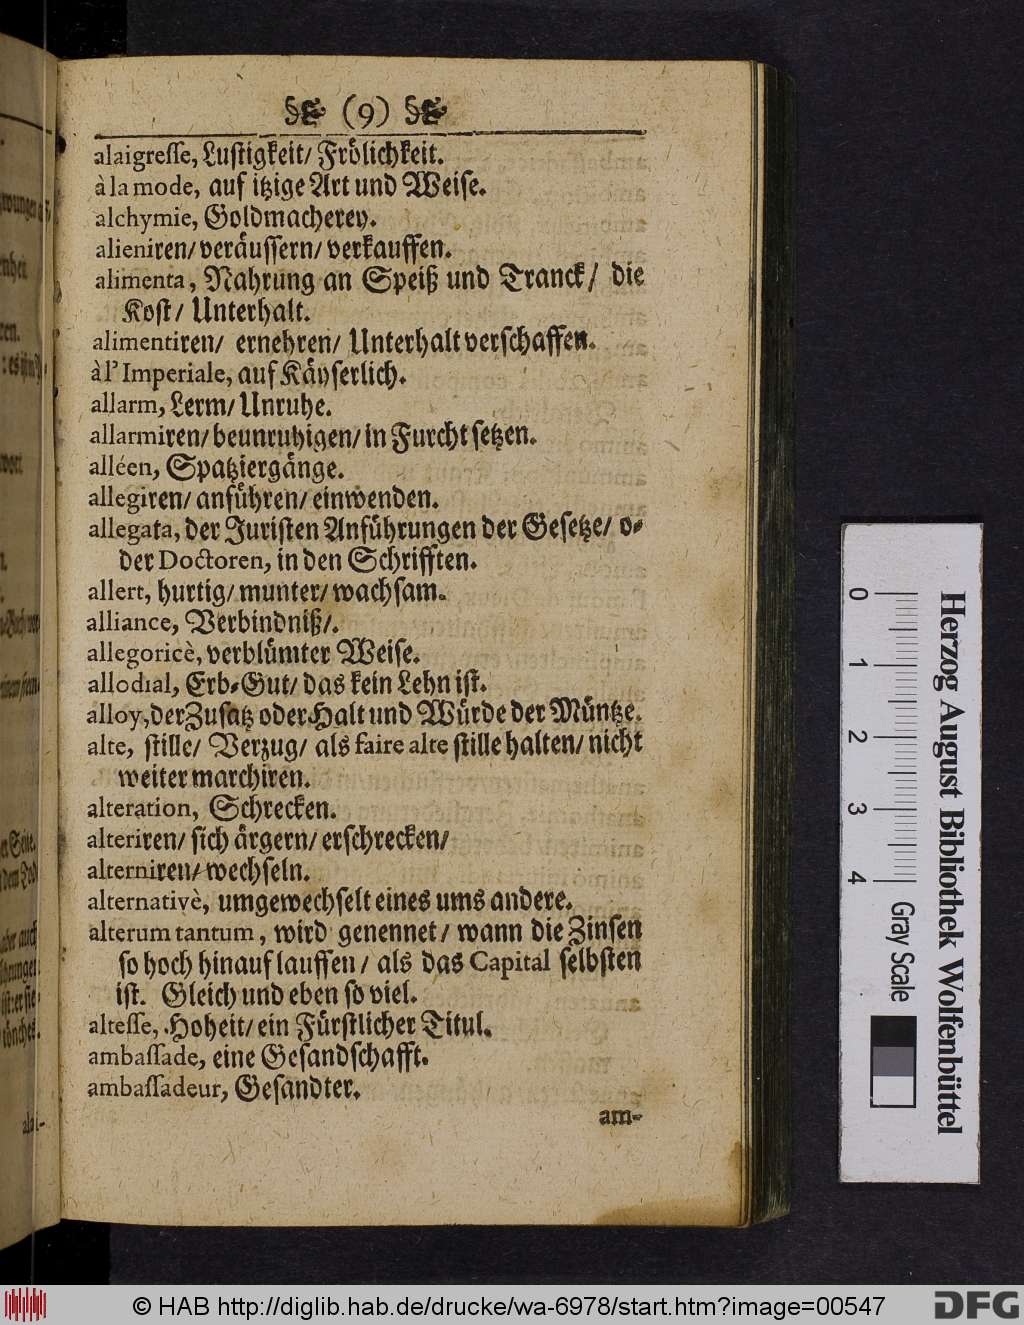 (9)
alaigreſſe, Luſtigkeit/ Frölichkeit.
à la mode, auf itzige Art und Weiſe.
alchymie, Goldmacherey.
alieniren/ veräuſſern/ verkauffen.
alimenta, Nahrung an Speiß und Tranck/ die
Koſt/ Unterhalt.
alimentiren/ ernehren/ Unterhalt verſchaffen.
à l' Imperiale, auf Käyſerlich.
allarm, Lerm/ Unruhe.
allarmiren/ beunruhigen/ in Furcht ſetzen.
alléen, Spatziergänge.
allegiren/ anführen/ einwenden.
allegata, der Juriſten Anführungen der Geſetze/ o⸗
der Doctoren, in den Schrifften.
allert, hurtig/ munter/ wachſam.
alliance, Verbindniß/.
allegoricè, verblümter Weiſe.
allodial, Erb⸗Gut/ das kein Lehn iſt.
alloy, der Zuſatz oder Halt und Würde der Müntze.
alte, ſtille/ Verzug/ als faire alte ſtille halten/ nicht
weiter marchiren.
alteration, Schrecken.
alteriren/ ſich ärgern/ erſchrecken/
alterniren/ wechſeln.
alternativè, umgewechſelt eines ums andere.
alterum tantum, wird genennet/ wann die Zinſen
ſo hoch hinauf lauffen/ als das Capital ſelbſten
iſt. Gleich und eben ſo viel.
alteſſe, Hoheit/ ein Fürſtlicher Titul.
ambaſſade, eine Geſandſchafft.
ambaſſadeur, Geſandter.
am-
Herzog August Bibliothek Wolfenbüttel
0 1 2 3 4 Gray Scale
© HAB http://diglib.hab.de/drucke/wa-6978/start.htm?image=00547
DFG